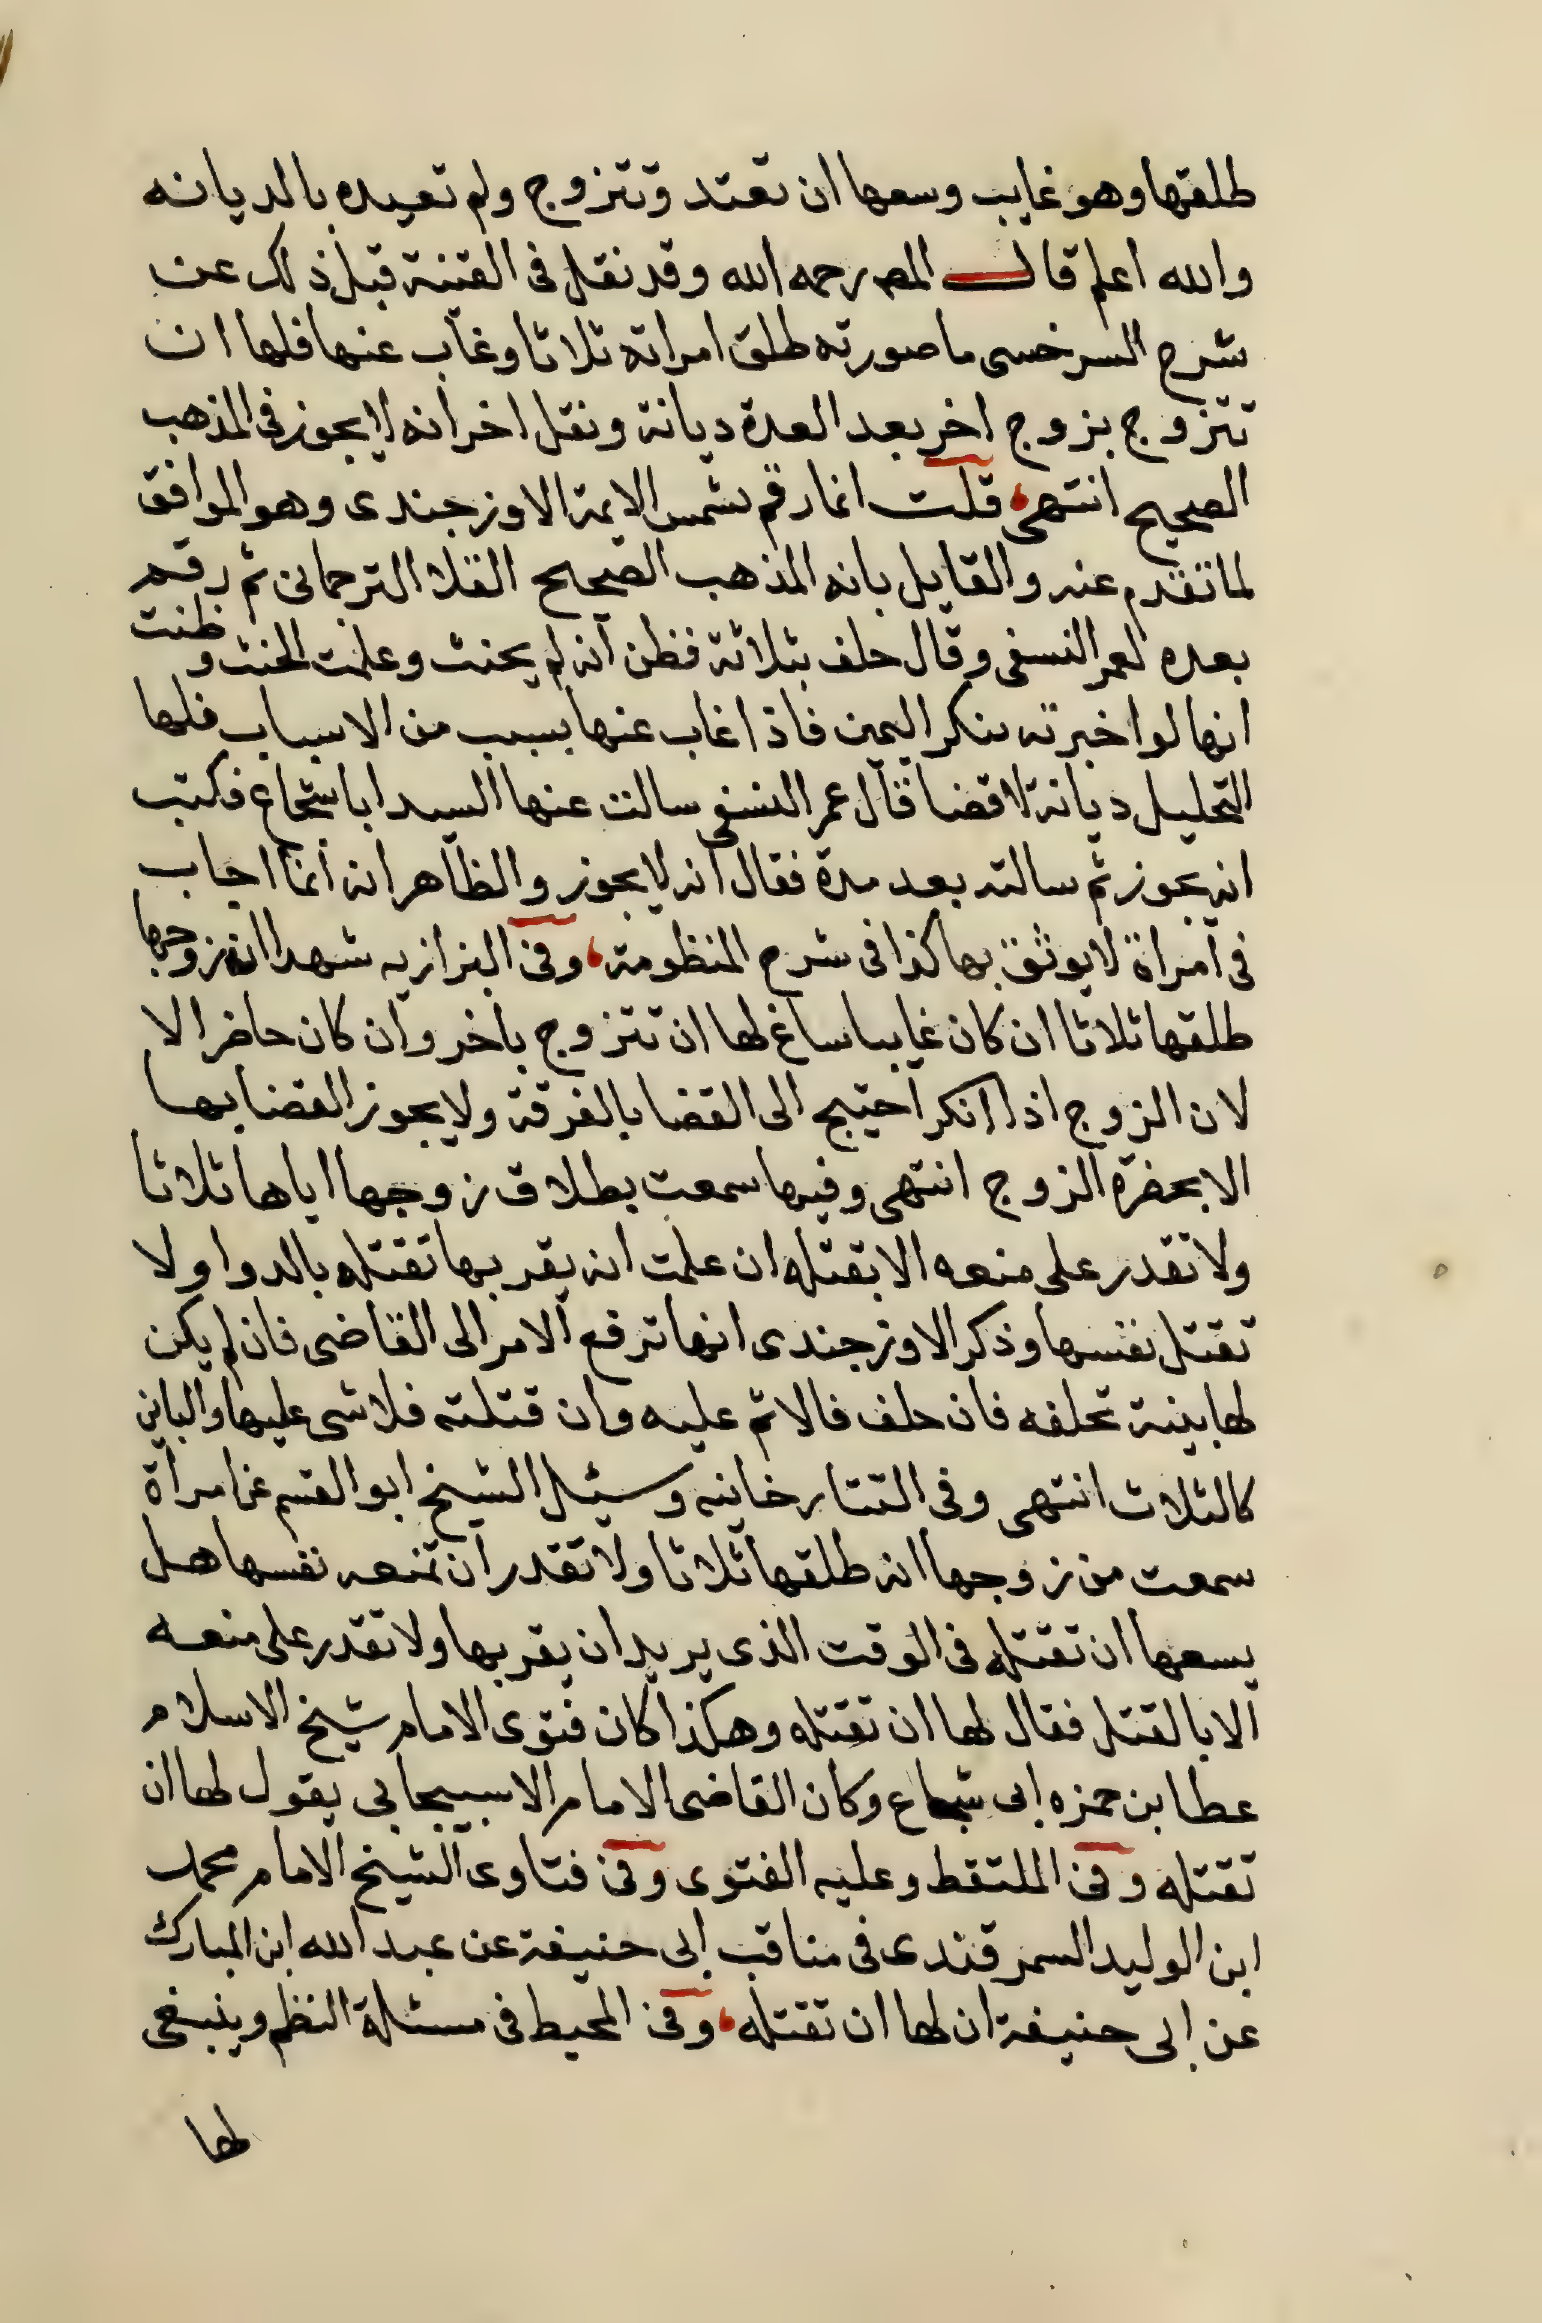 طلقها وهو غايب وسعها ان تعتد وتتزوج ولم تعيده بالديانه
والله اعلم قال المص رحمه الله وقد نقل فى القنية قبل ذلك عن
شرح السرخسى ما صورته طلق امراته ثلاثا وغاب عنها فلها ان
تتزوج بزوج اخر بعد العدة ديانة ونقل اخر انه لا يجوز فى المذهب
الصحيح انتهى قلت انما رقم لشمس الايمة الاوزجندى وهو الموافق
لما تقدم عنه والقايل بانه المذهب الصحيح العلا الترجمانى ثم رقم
بعده لعمر النسفى وقال حلف بثلاثة فظن انه لم يحنث وعلمت الحنث وظنت
انها لو اخبرته ينكر اليمين فاذا غاب عنها بسبب من الاسباب فلها
التحليل ديانة لا قضا قال عمر النسفى سالت عنها السيد ابا شجاع فكتب
انه يجوز ثم سالته بعد مدة فقال انه لا يجوز والظاهر انه انما اجاب
فى امراة لا يوثق بها كذا فى شرح المنظومة وفى البزازيه شهدا ان زوجها
طلقها ثلاثا ان كان غايبا ساغ لها ان تتزوج باخر وان كان حاضرا لا
لان الزوج اذا انكر احتيج الى القضا بالفرقة ولا يجوز القضا بها
الا بحضرة الزوج انتهى وفيها سمعت بطلاق زوجها اياها ثلاثا
ولا تقدر على منعه الا بقتله ان علمت انه يقربها تقتله بالدوا ولا
تقتل نفسها وذكر الاوزجندى انها ترفع الامر الى القاضى فان لم يكن
لها بينة تحلفه فان حلف فالاثم عليه وان قتلته فلا شى عليها والباين
كالثلاث انتهى وفى التتارخانيه وسئل الشيخ ابو القسم عن امراة
سمعت من زوجها انه طلقها ثلاثا ولا تقدر ان تمنعه نفسها هل
يسعها ان تقتله فى الوقت الذى يريد ان يقربها ولا تقدر على منعه
الا بالقتل فقال لها ان تقتله وهكذا كان فتوى الامام شيخ الاسلام
عطا بن حمزه ابى شجاع وكان القاضى الامام الاسبيجابى يقول لها ان
تقتله وفى الملتقط وعليه الفتوى وفى فتاوى الشيخ الامام محمد
ابن الوليد السمرقندى فى مناقب ابى حنيفة عن عبد الله ابن المبارك
عن ابى حنيفة ان لها ان تقتله وفى المحيط فى مسئلة النظم وينبغى
لها